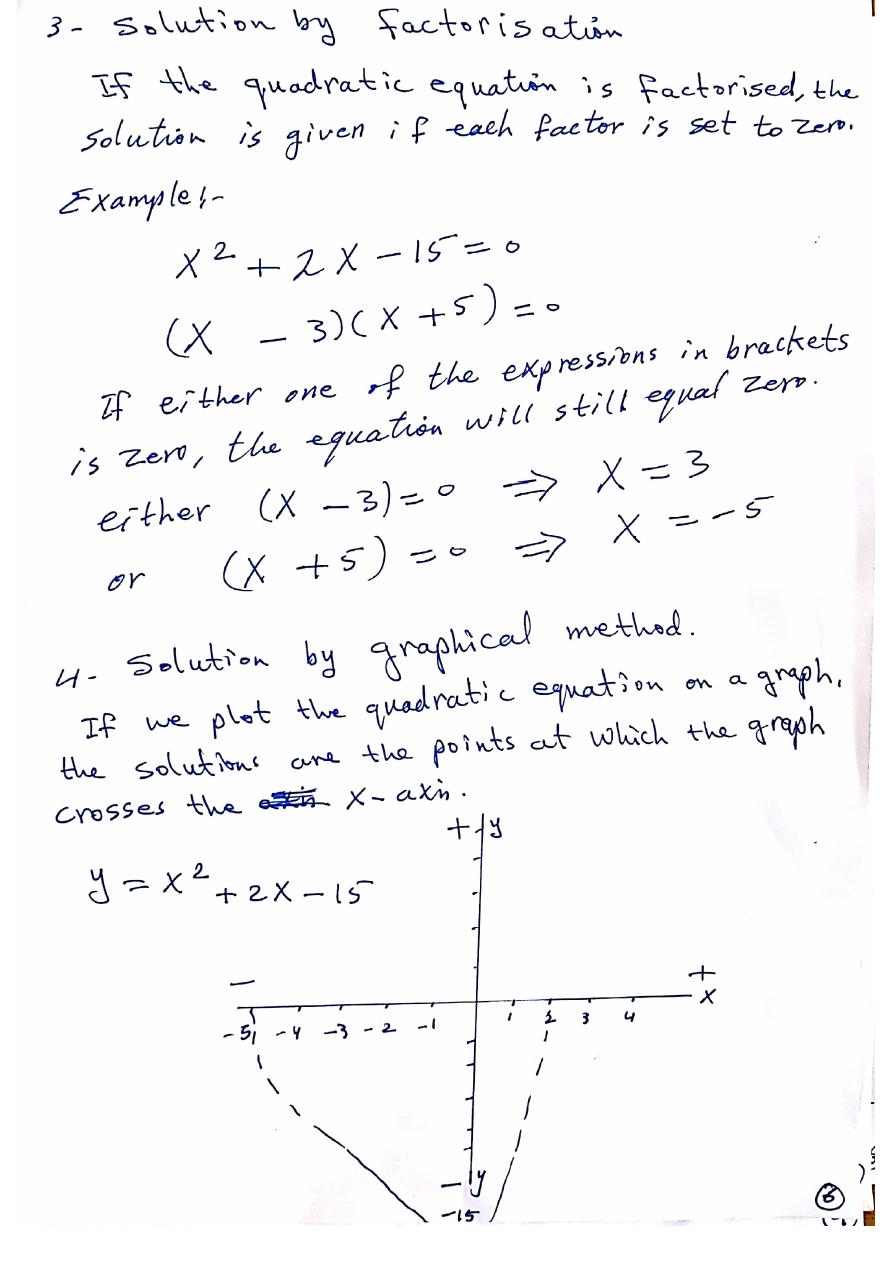 3- Solution by factorisation
If the quadratic equation is factorised, the
solution is given if each factor is set to zero.
Example:-
x² + 2x - 15 = 0
(x - 3)(x + 5) = 0
If either one of the expressions in brackets
is zero, the equation will still equal zero.
either (x - 3) = 0 ⇒ x = 3
or (x + 5) = 0 ⇒ x = -5
4- Solution by graphical method.
If we plot the quadratic equation on a graph,
the solutions are the points at which the graph
crosses the x-axis.
+y
y = x² + 2x - 15
- +
x
-5 -4 -3 -2 -1 1 2 3 4
-y
-15